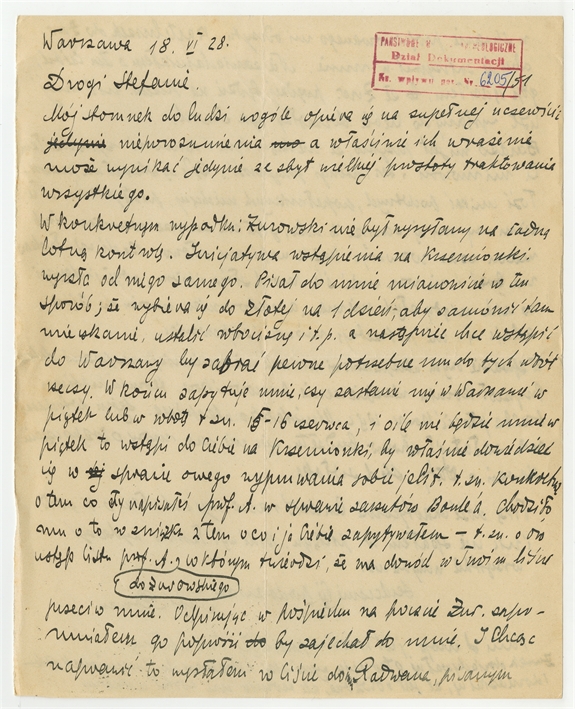 Warszawa 18. VI 28.
PAŃSTWOWE M
OLOGICZNE
Dział Dokumentacji
Kt. wpływu poz. Nr. 6205/51
Drogi Stefanie.
Mój stosunek do ludzi wogóle opiera się na zupełnej uczciwości
jedynie nieporozumienia a właściwie ich wrażenie
może wynikać jedynie ze zbyt wielkiej prostoty traktowania
wszystkiego.
W konkretnym wypadku: Żurowski nie był wysyłany na żadną
lotną kontrolę. Inicjatywa wstąpienia na Krzemionki
wyszła od niego samego. Pisał do mnie mianowicie w ten
sposób; że wybiera się do Złotej na 1 dzień, aby zamówić tam
mieszkanie, ustalić robociznę i t.p. a następnie chce wstąpić
do Warszawy by zabrać pewne potrzebne mu do tych robót
rzeczy. W końcu zapytuje mnie, czy zastanie mię w Warszawie w
piątek lub w sobotę t.zn. 15-16 czerwca, i o ile nie będzie mnie w
piątek to wstąpi do Ciebie na Krzemionki, by właśnie dowiedzieć
się w sprawie owego wypruwania sobie jelit. t.zn. konkretnie
o tem co Ty napisałeś prof. A. w sprawie zarzutów Boule'a. Chodziło
mu o to w związku z tem o co i ja Ciebie zapytywałem – t. zn. o ów
ustęp listu prof. A. w którym twierdzi, że ma dowód w Twoim liście
do Żurowskiego
przeciw mnie. Odpisując w pośpiechu na poczcie Żur. zapo-
mniałem go poprosić by zajechał do mnie. I chcąc
naprawić to wysłałem w liście do Radwana, pisanym